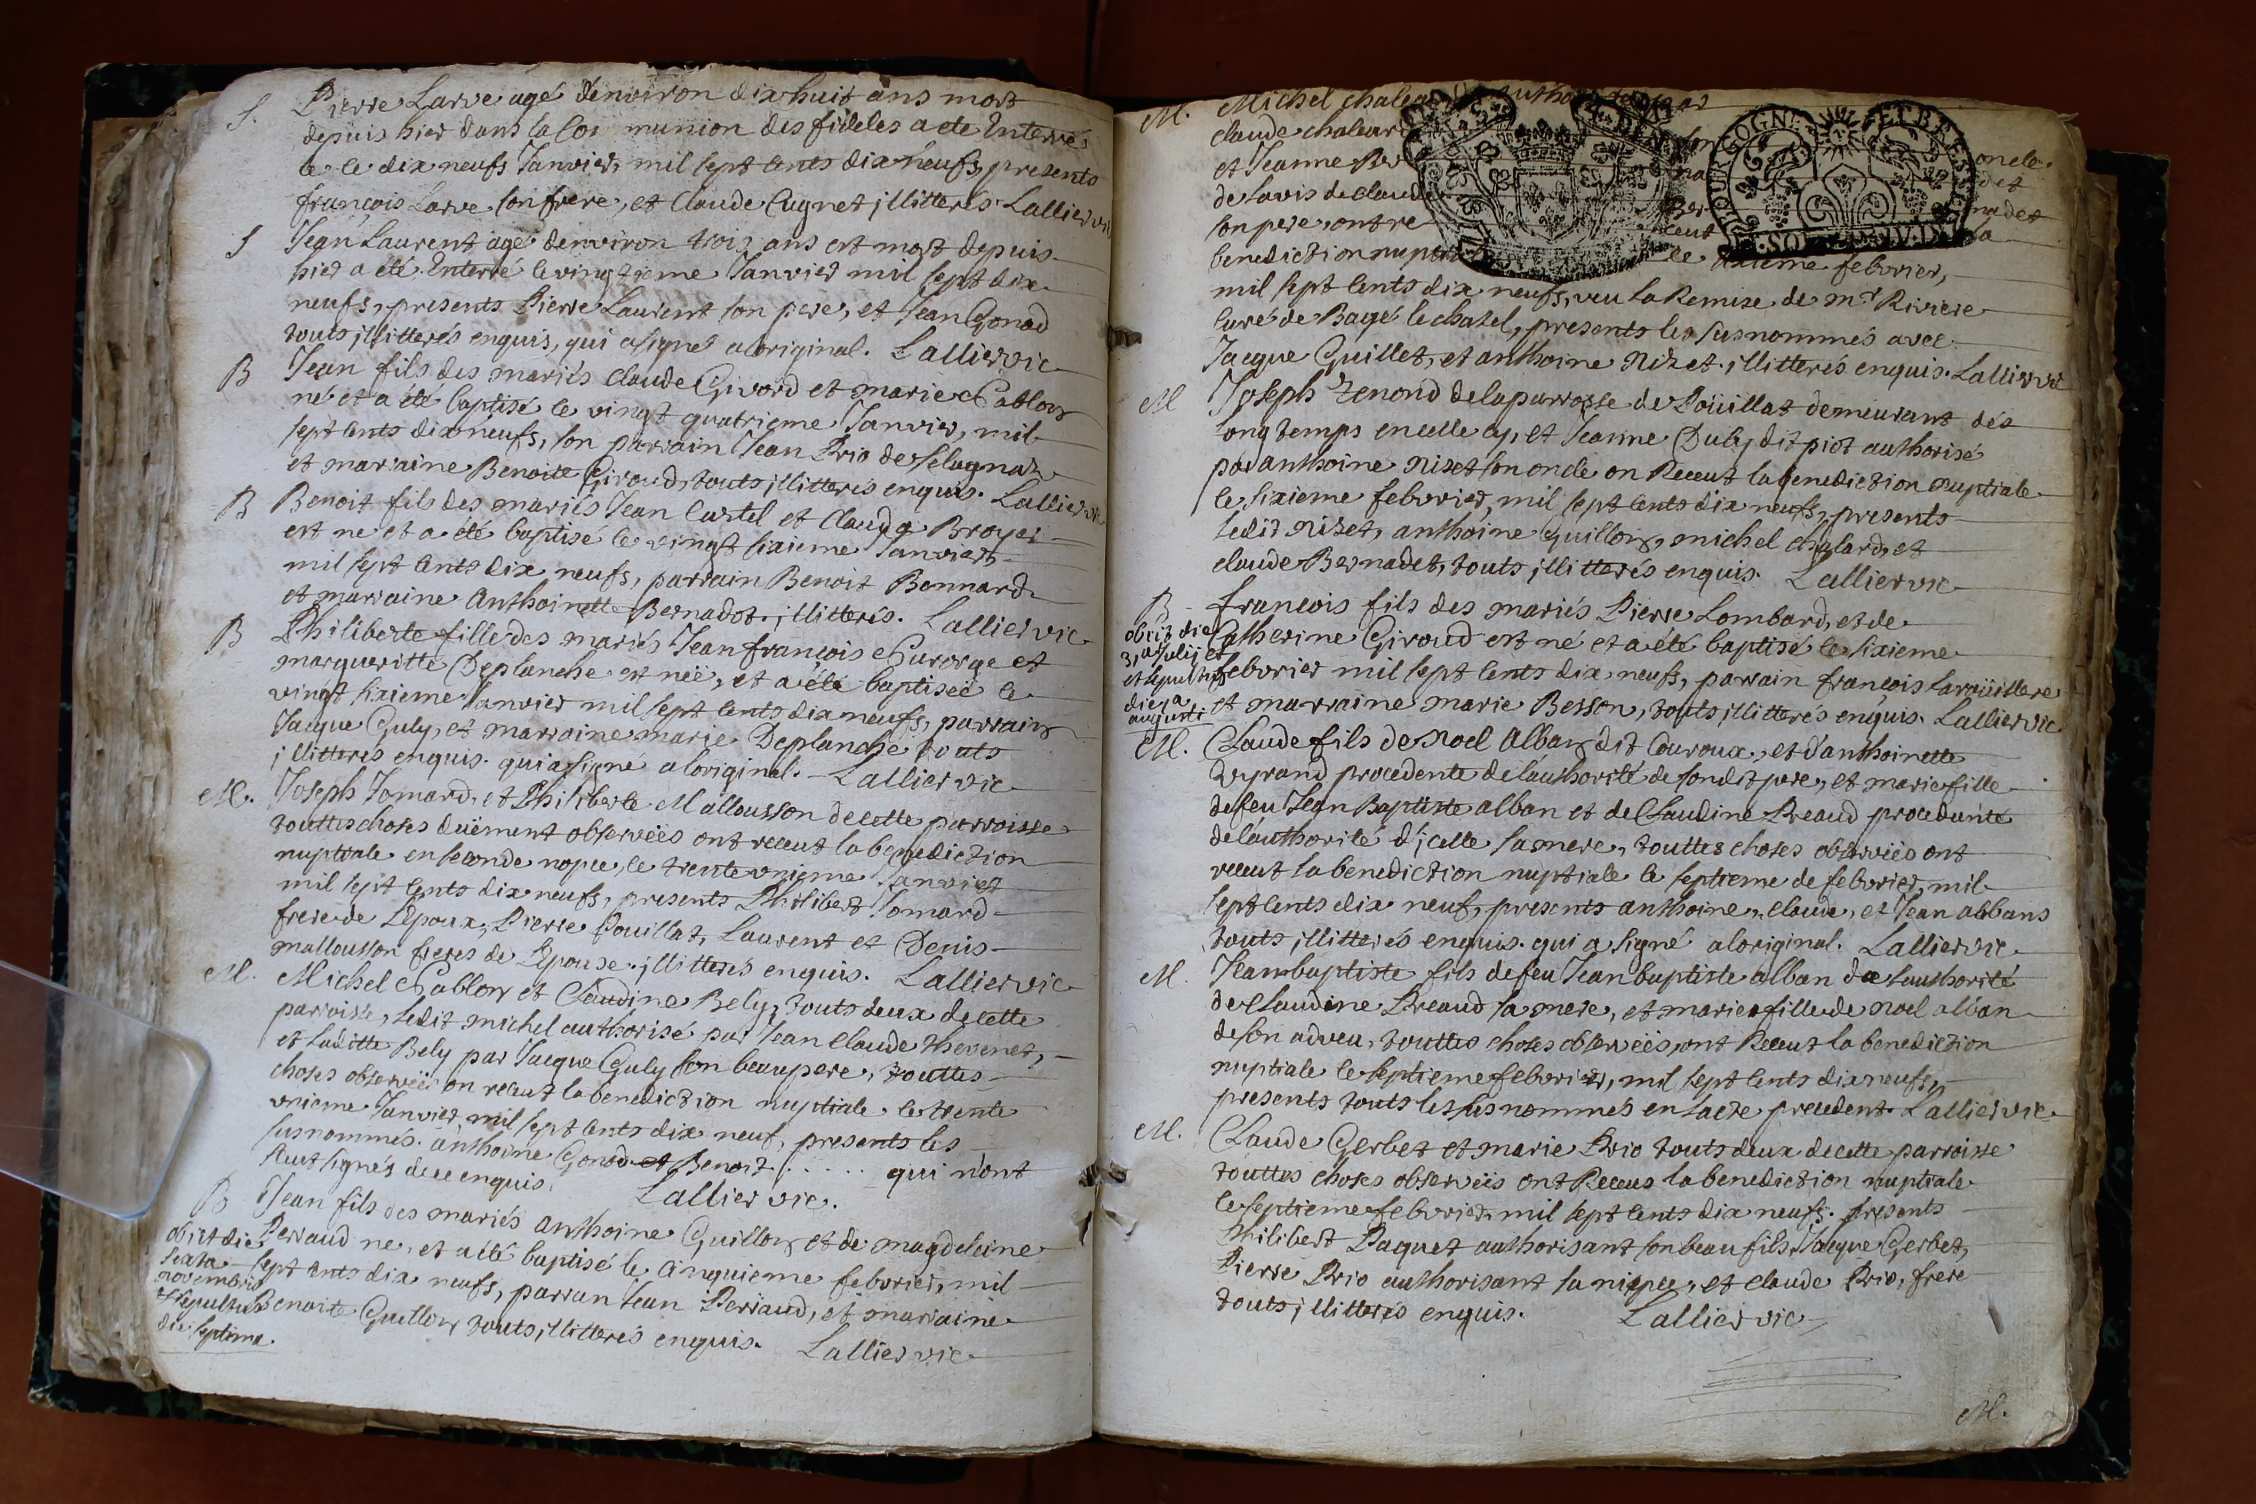 S. Pierre Larve agé d'environ dix huit ans mort
depuis hier dans la Communion des fideles a eté Enterré
le le dix neufs Janvier, mil sept cents dix neufs, presents
françois Larve son frere, et Claude Cugnet jllitterés Lallier vic
S Jean Laurent agé denviron trois ans est mort depuis
hier a été Enterré le vingtieme Janvier mil sept dix
neufs, presents Pierre Laurent son pere, et Jean Gonod
touts jllitterés enquis, qui a signé a loriginal. Lallier vic
B Jean fils des mariés Claude Givord et marie Pablon
né et a été baptisé le vingt quatrieme Janvier, mil
sept cents dix neufs, son parrain Jean Prio de
et marraine Benoite Giroud, touts jllitterés enquis. Lallier vic
B Benoit fils des mariés Jean Curtel et Claude Broyer
est né et a été baptisé le vingt sixieme Janvier
mil sept cents dix neufs, parrain Benoit Bonnard
et marraine Anthoinette Bernadot. jllitterés. Lallier vic
B Philiberte fille des mariés Jean françois et
margueritte Deplanche est néë, et a été baptiseé le
vingt sixieme Janvier mil sept cents dix neufs, parrain
Jacque Guly, et marraine marie Deplanche touts
jllitterés enquis. qui a signe a loriginal. Lallier vic
M. Joseph Jomard, et Philiberte Mallousson de cette parroisse
touttes choses duëment observéës ont receut la benediction
nuptiale en seconde nopce, le trente vnieme Janvier
mil sept cents dix neufs, presents Philibert Jomard
frere de L'epoux, Pierre Pouillat, Laurent et Denis
mallousson freres de L'epouse. jllitterés enquis. Lallier vic
M. Michel Pablon et Claudine Bely, touts deux de cette
parroisse, Ledit michel authorisé par Jean Claude thevenet,
et Laditte Bely par Jacque Guly son beaupere, touttes
choses observéës on receut la benediction nuptiale. le trente
vnieme Janvier mil sept cents dix neuf, presents les
susnommés. anthoine Gonod et Benoit ..... qui n'ont
sceut signés de ce enquis. Lallier vic.
B Jean fils des mariés anthoine Guillon et de magdeleine
obiit die Perraud né, et a été baptisé le cinquieme febvrier, mil
sexta sept cents dix neufs, parran Jean Perraud, et marraine
novembris
et sepultus Benoite Guillon touts, jllitterés enquis. Lallier vic
die septima.
M. Michel authorisé
claude
et Jeanne oncle.
de lavis de Claude det
son pere, ont re ceut
benediction nuptiale le sixieme febvrier,
mil sept cents dix neufs, veu la Remise de mr Riviere
curé de Bagé le chatel, presents les susnommés avec
Jacque Guillet, et anthoine Nizet. jllitterés enquis. Lallier vic
M Joseph Zenond de la parroisse de Poüillat demeurant dés
longtemps en celle cy, et Jeanne Duby dit piot authorisé
par anthoine Nizet son oncle on Receut la benediction nuptiale
le sixieme febvrier, mil sept cents dix neufs, presents
Ledit Nizet, anthoine Guillon, michel chalard, et
claude Bernadet, touts jllitterés enquis. Lallier vic
B françois fils des mariés Pierre Lombard, et de
obiit die Catherine Giroud est né et a été baptisé le sixieme
31a Julij et
et sepultus febvrier mil sept cents dix neufs, parrain françois Laroüillere
die 1a et marraine marie Besson, touts jllitterés enquis. Lallier vic
augusti
M. Claude fils de Noel Alban dit Couroux, et d'anthoinette
procedente de l'authorité de sondit pere, et marie fille
de feu Jean Baptiste alban et de Claudine Preaud procedante
de l'authorité d'jcelle sa mere, touttes choses observéës ont
receut la benediction nuptiale le septieme de febvrier, mil
sept cents dix neuf, presents anthoine, Claude, et Jean albans
touts jllitterés enquis. qui a signé a loriginal. Lallier vic.
M. Jeanbaptiste fils de feu Jean baptiste alban de lauthorité
de Claudine Preaud sa mere, et marie fille de Noel alban
de son adveu, touttes choses observéës, ont Receut la benediction
nuptiale le septieme febvrier, mil sept cents dix neufs,
presents touts les susnommés en lacte precedent. Lallier vic.
M. Claude Gerbet et marie Prio touts deux de cette parroisse
touttes choses observéës ont Receus la benediction nuptiale
le septieme febvrier mil sept cents dix neufs. presents
Philibert Paquet authorisant son beau fils, Jacque Gerbet,
Pierre Prio authorisant sa niepce, et claude Prio, frere
touts jllitterés enquis. Lallier vic
M.